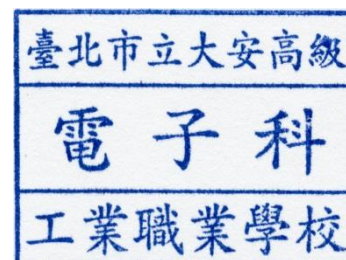 臺北市立大安高級
電子科
工業職業學校